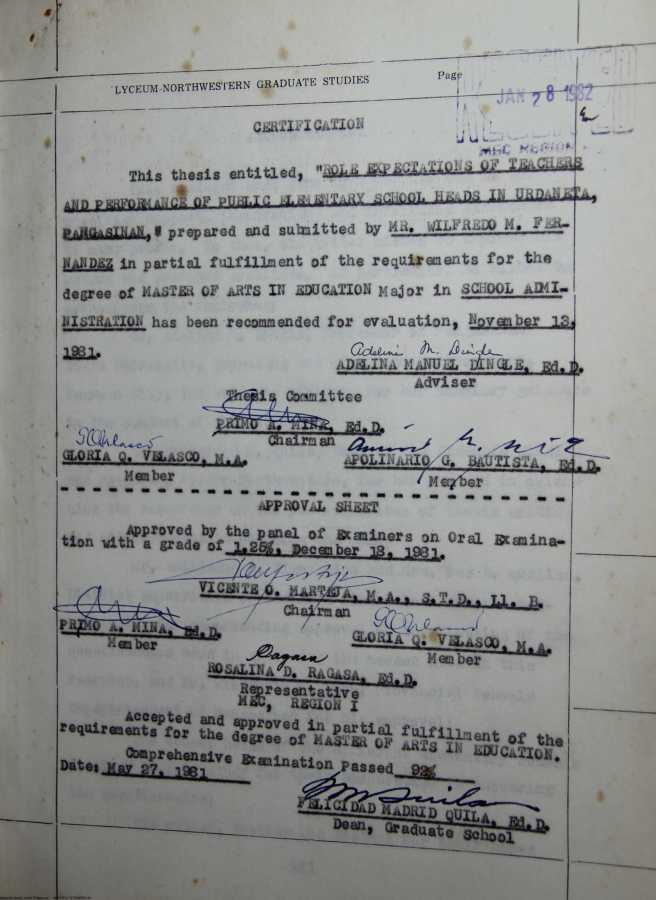 LYCEUM-NORTHWESTERN GRADUATE STUDIES Page
JAN 28 1982
MEC REGION
CERTIFICATION
This thesis entitled, "ROLE EXPECTATIONS OF TEACHERS
AND PERFORMANCE OF PUBLIC ELEMENTARY SCHOOL HEADS IN URDANETA,
PANGASINAN," prepared and submitted by MR. WILFREDO M. FER-
NANDEZ in partial fulfillment of the requirements for the
degree of MASTER OF ARTS IN EDUCATION Major in SCHOOL ADMI-
NISTRATION has been recommended for evaluation, November 13,
1981.
Adelina M. Dingle
ADELINA MANUEL DINGLE, Ed.D.
Adviser
Thesis Committee
PRIMO A. MINA, Ed.D.
Chairman
GQVelasco
GLORIA Q. VELASCO, M.A. APOLINARIO G. BAUTISTA, Ed.D.
Member Member
APPROVAL SHEET
Approved by the panel of Examiners on Oral Examina-
tion with a grade of 1.25%, December 18, 1981.
VICENTE O. MARTEJA, M.A., S.T.D., Ll. B.
Chairman
GQVelasco
PRIMO A. MINA, Ed.D. GLORIA Q. VELASCO, M.A.
Member Member
Ragasa
ROSALINA D. RAGASA, Ed.D.
Representative
MEC, REGION I
Accepted and approved in partial fulfillment of the
requirements for the degree of MASTER OF ARTS IN EDUCATION.
Comprehensive Examination Passed 92%
Date: May 27, 1981
FELICIDAD MADRID QUILA, Ed.D.
Dean, Graduate School